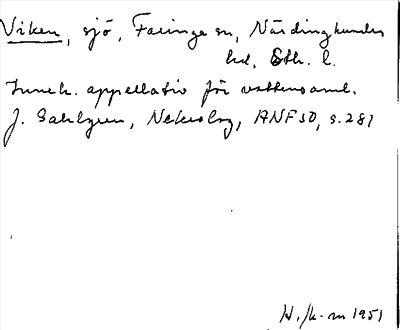 Viken, sjö, Faringe sn, Närdinghundra
hd, Sth. l.
Inneh. appellativ för vattensaml.
J. Sahlgren, Nekrolog, ANF 50, s. 281
H. /k-m 1951